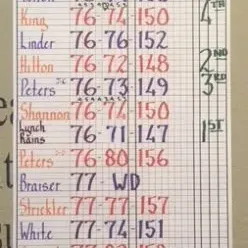 King 76-74-150 4TH
Linder 76-76-152
Hilton 76-72-148 2ND
Peters 76-73-149 3RD
Shannon 76-74-150
Lynch Rains 76-71-147 1ST
Peters 76-80-156
Braiser 77-WD
Strickler 77-77-157
White 77-74-151